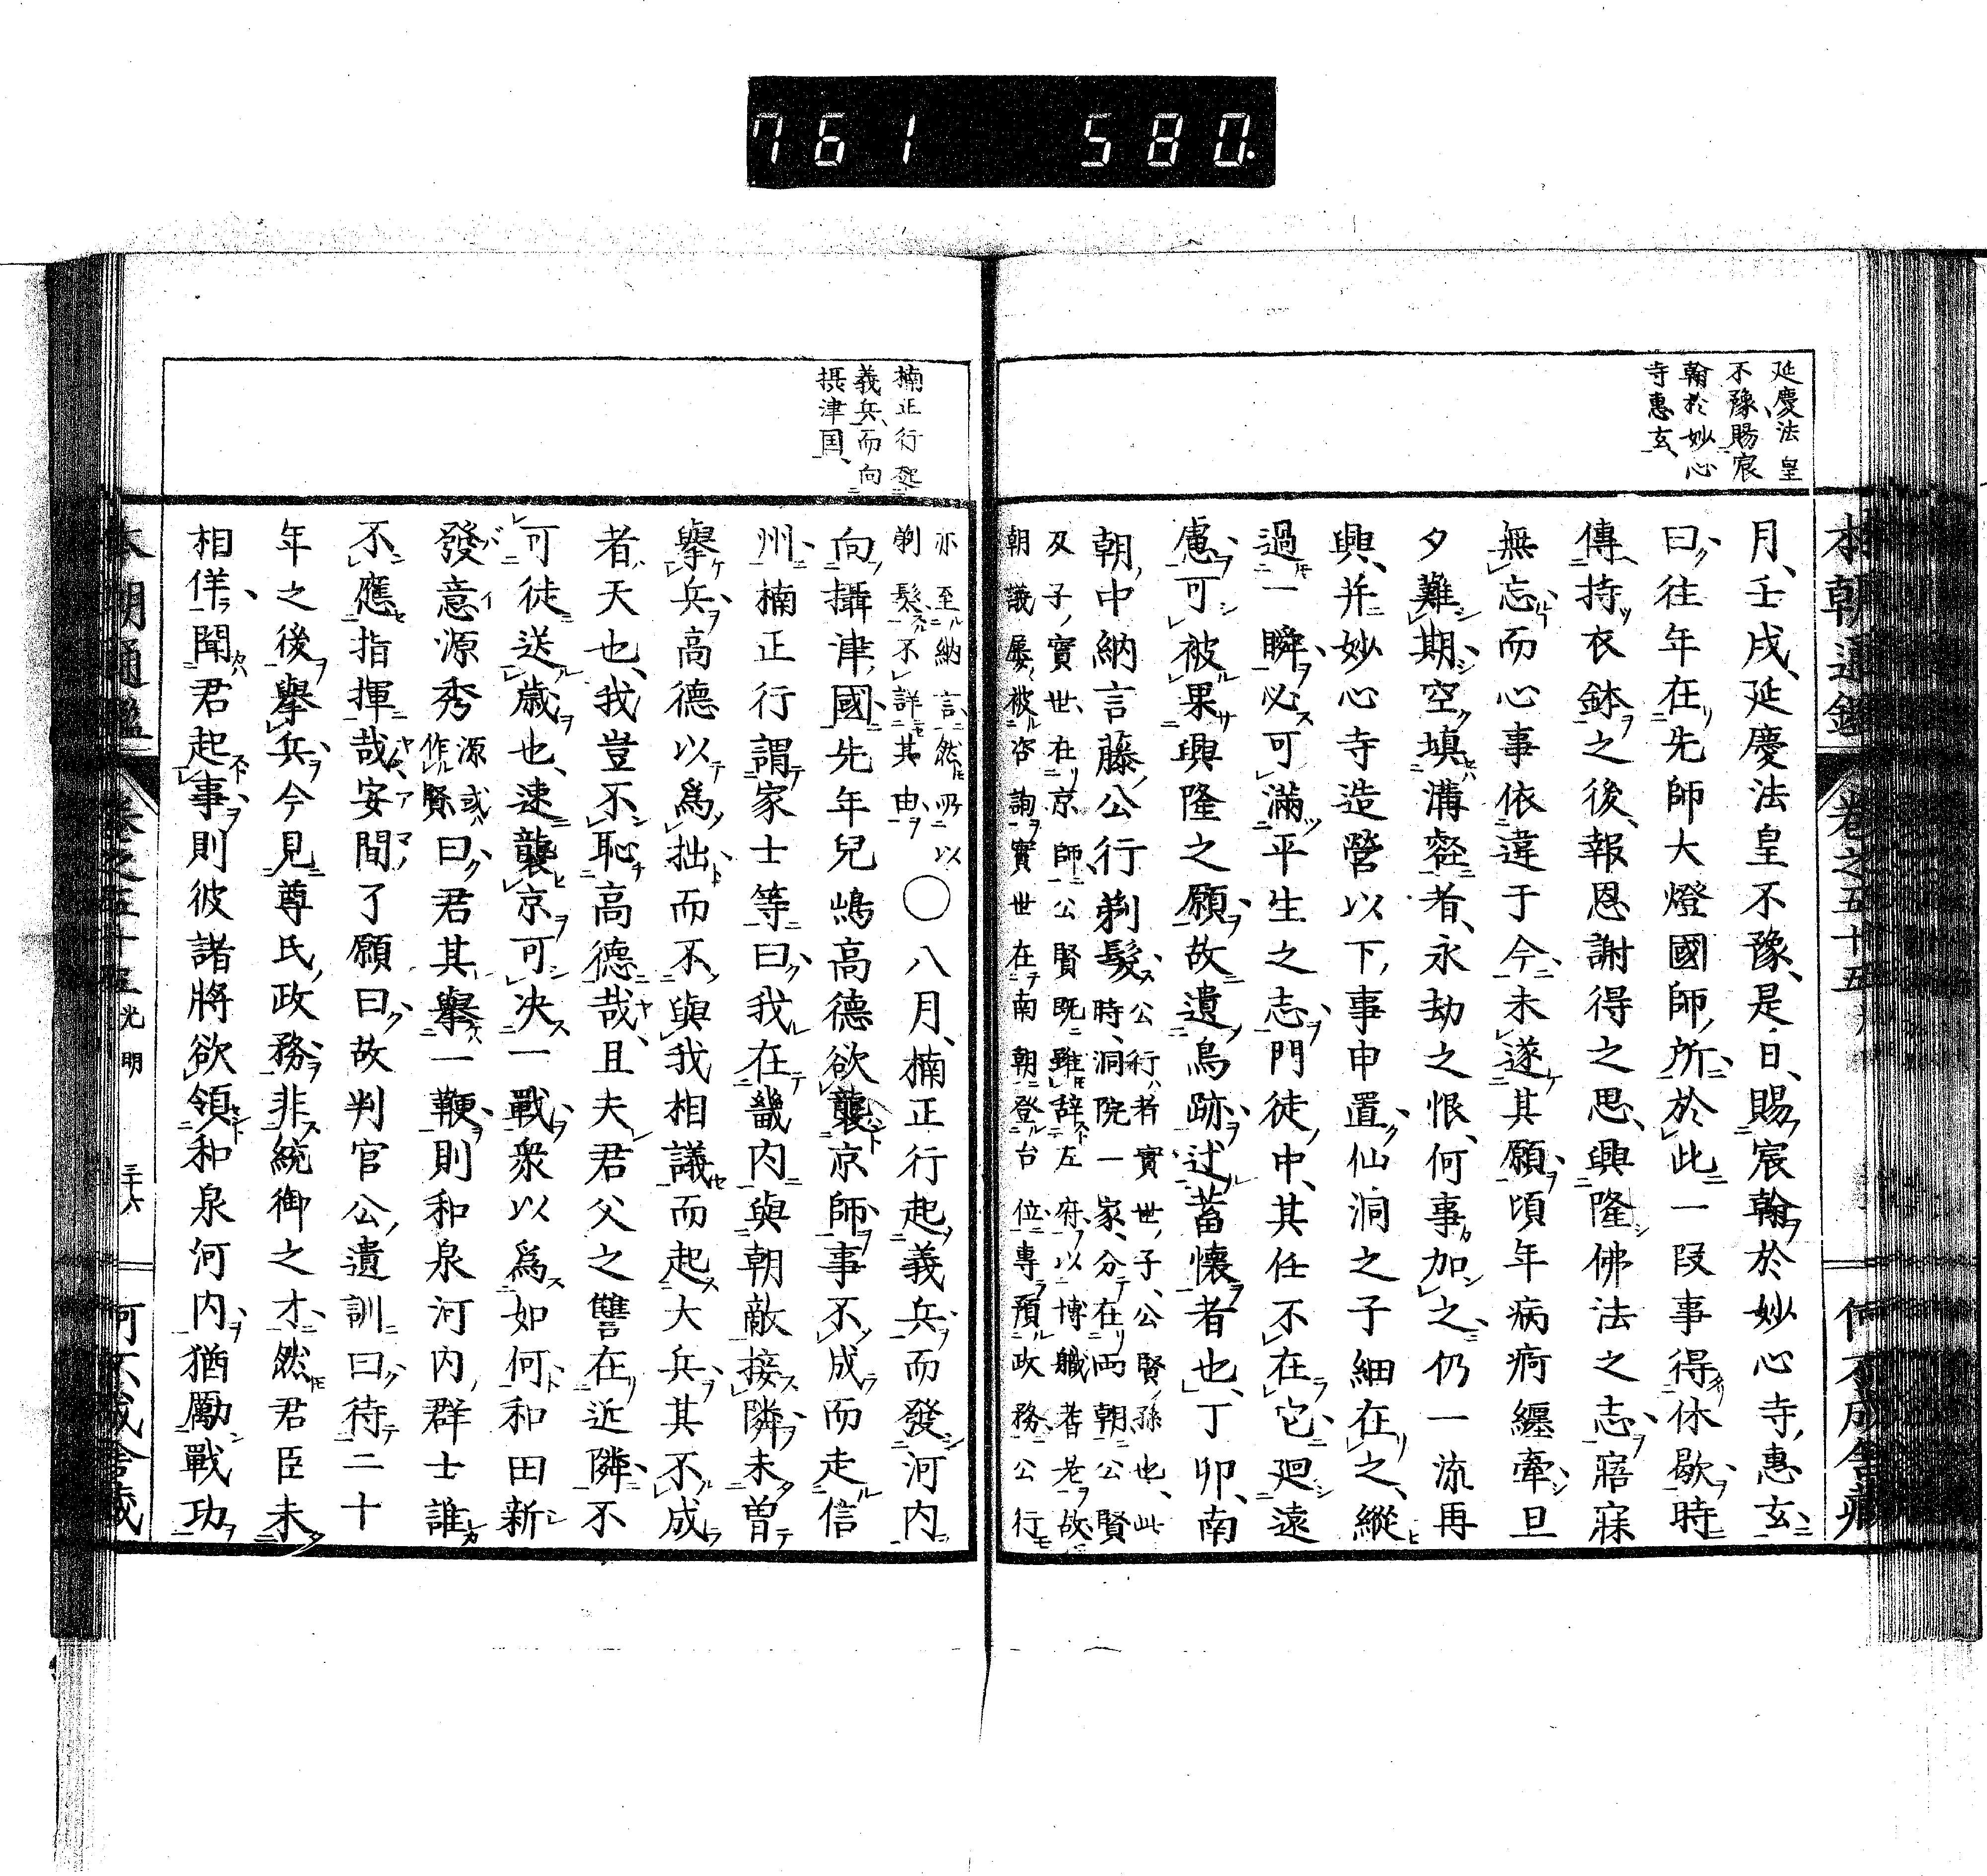 761 580.
延慶法皇
不豫賜宸
翰於妙心
寺惠玄
本朝通鑑 卷之五十五 何不成舍藏
月壬戌延慶法皇不豫是日賜宸翰於妙心寺惠玄
曰往年在先師大燈國師所於此一段事得休歇時
傳持衣鉢之後報恩謝得之思興隆佛法之志寤寐
無忘而心事依違于今未遂其願頃年病痾纏牽旦
夕難期空塡溝壑者永劫之恨何事加之仍一流再
興并妙心寺造營以下事申置仙洞之子細在之縱
過一瞬必可滿平生之志門徒中其任不在它廻遠
慮可被果興隆之願故遺鳥跡述蓄懷者也丁卯南
朝中納言藤公行剃髮公行者實世子公賢孫也此
時洞院一家分在兩朝公賢
及子實世在京師公賢既雖辞左府以博職耆老故
朝議屡被咨詢實世在南朝登台位專預政務公行
楠正行發
義兵而向
摂津国
亦至納言然所以
剃髮不詳其由○八月楠正行起義兵而發河内
向攝津國先年兒嶋高德欲襲京師事不成而走信
州楠正行謂家士等曰我在畿内與朝敵接隣未曽
擧兵高德以爲拙而不與我相議而起大兵其不成
者天也我豈不恥高德哉且夫君父之讐在近隣不
可徒送歳也速襲京可决一戰衆以爲如何和田新
發意源秀源或作賢曰君其擧一鞭則和泉河内群士誰
不應指揮哉安間了願曰故判官公遺訓曰待二十
年之後擧兵今見尊氏政務非統御之才然君臣未
相佯聞君起事則彼諸將欲領和泉河内猶勵戰功
本朝通鑑 卷之五十五 光明 三六 何不成舍藏